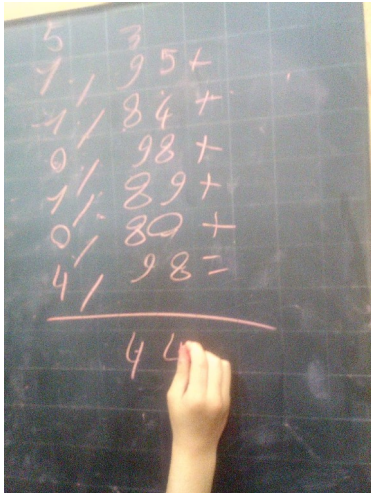 5 3
1,95+
1,84+
0,98+
1,89+
0,80+
4,98=
44